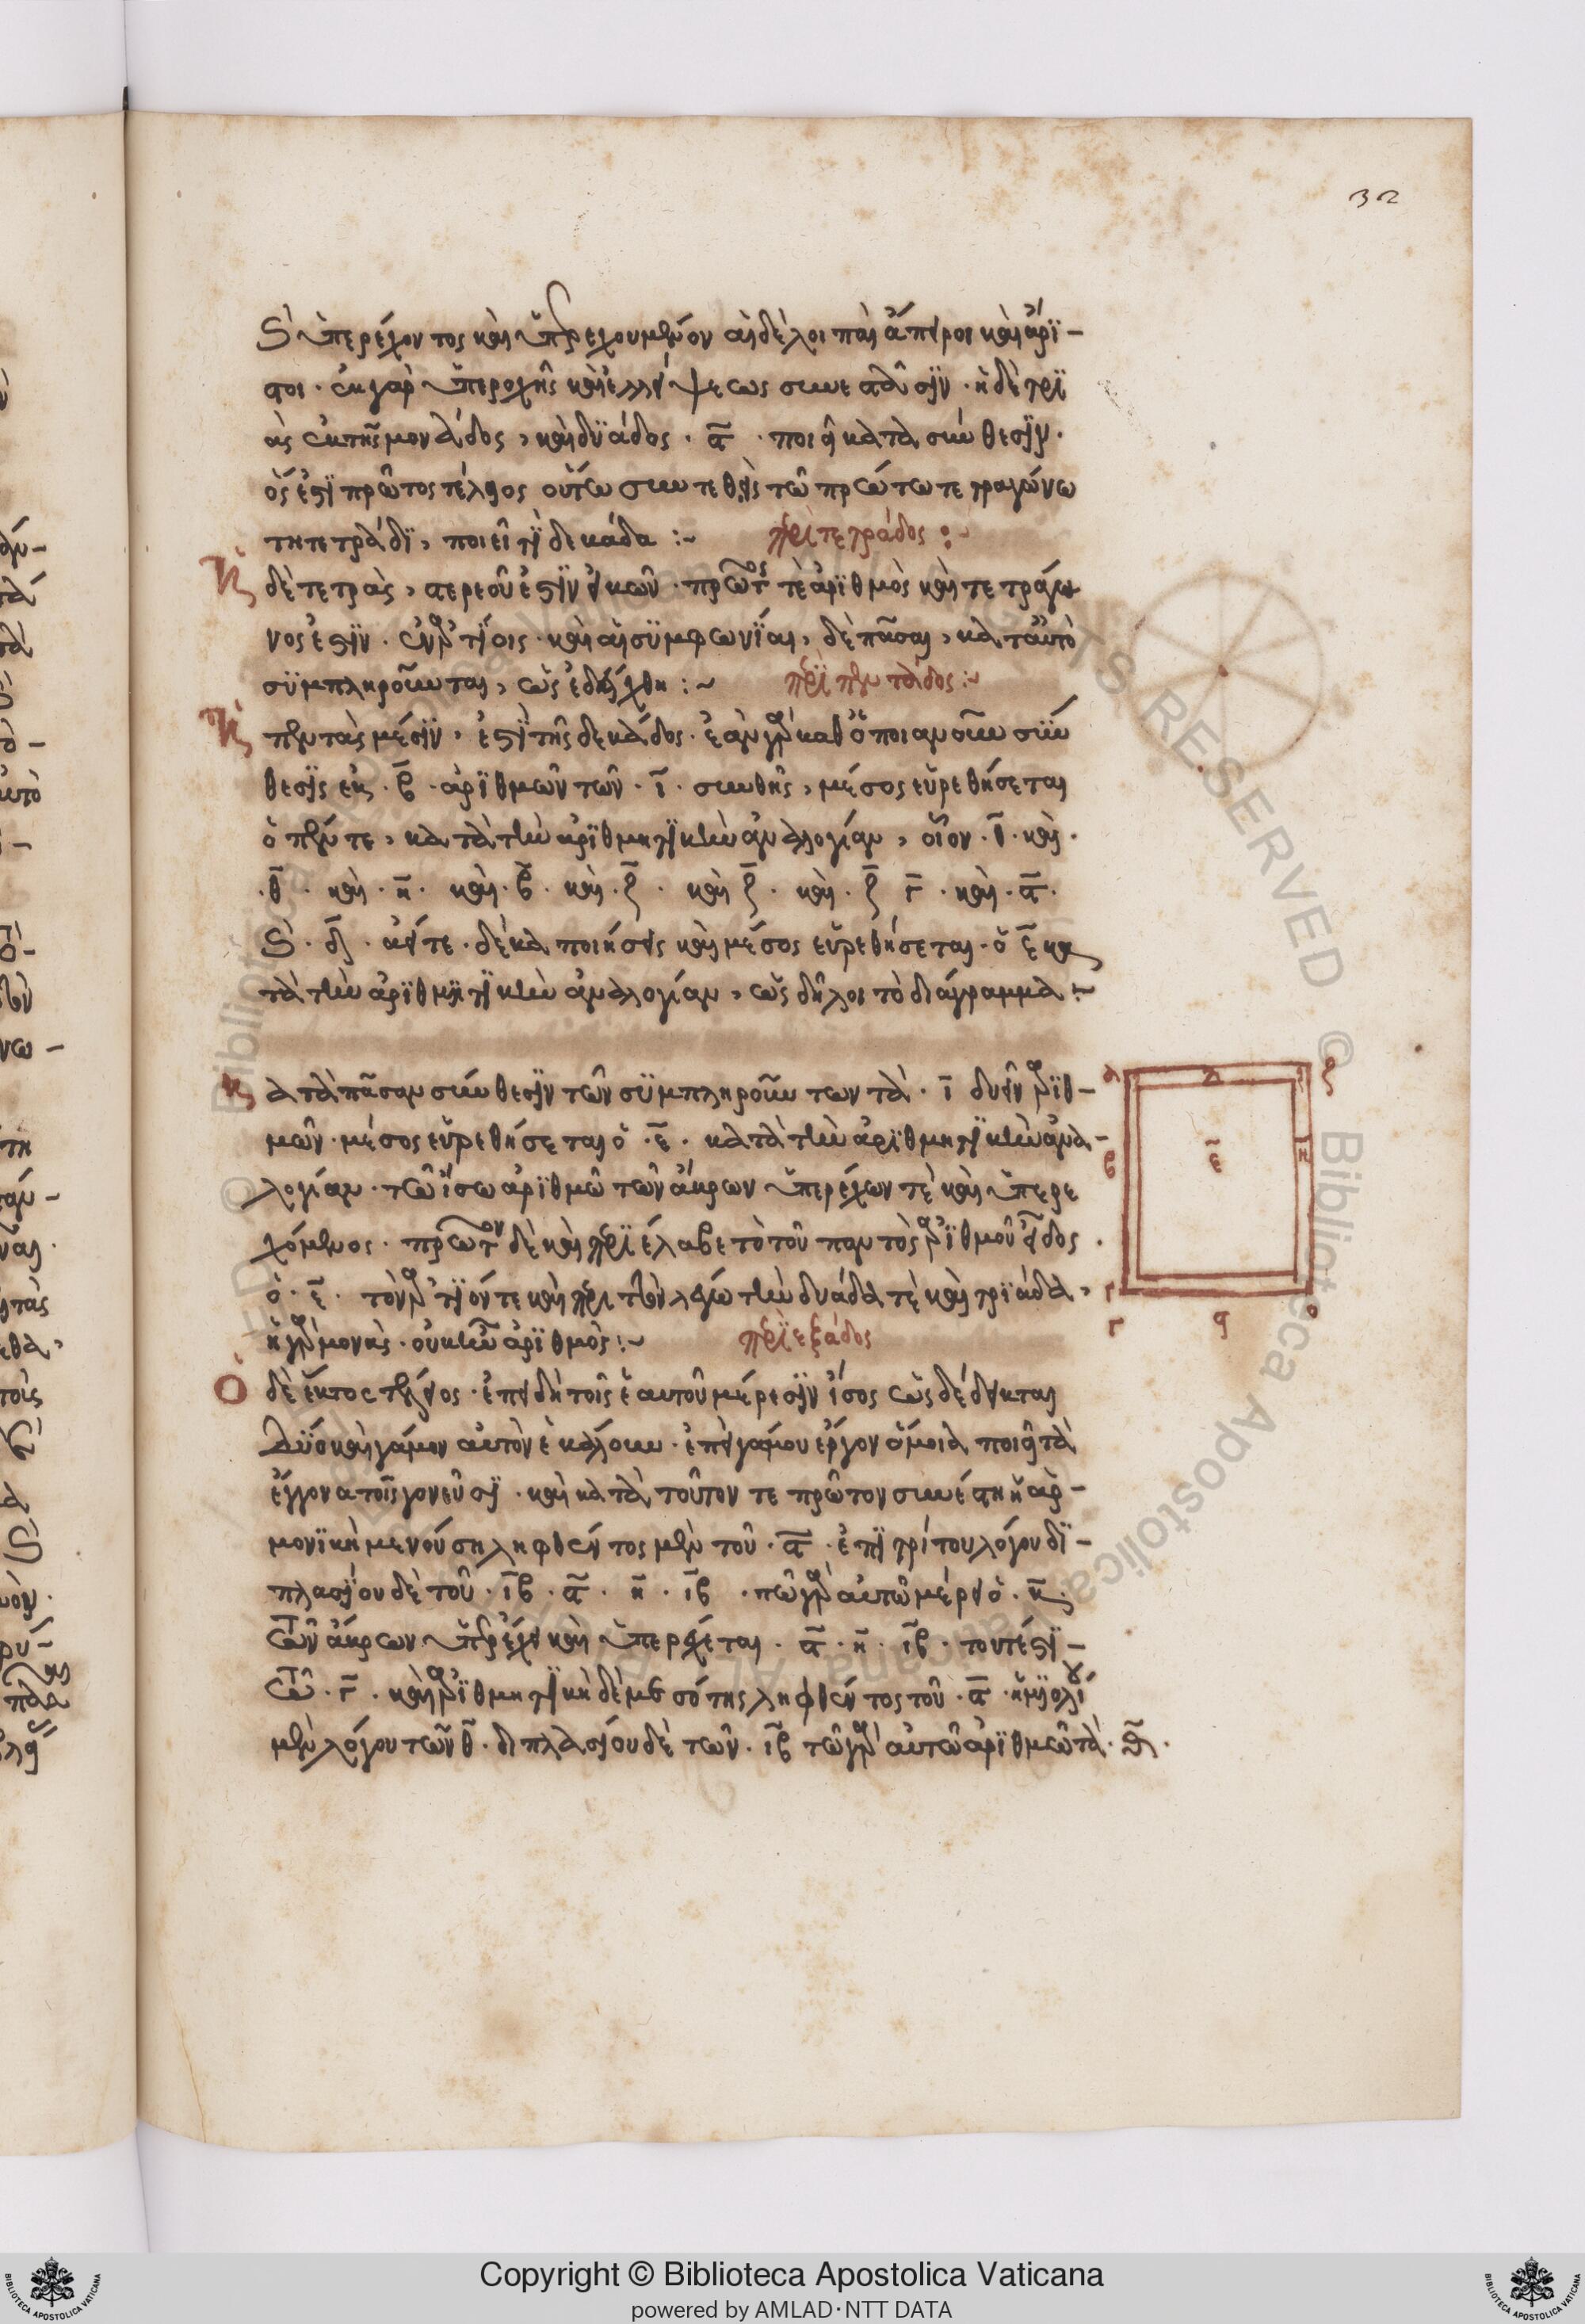 32
δι ὑπερέχοντος καὶ ὑπερεχουμένου αἱ δὲ λοιπαὶ ἄπειροι καὶ ἀόρι-
στοι · ἐκ γὰρ ὑπεροχῆς καὶ ἐλλείψεως συνεστᾶσϊν · ἡ δὲ τρϊ
ὰς ἐκ τῆς μονάδος, καὶ δϋάδος · ϛ̄ · ποιεῖ κατὰ σύνθεσϊν ·
ὅς ἐστϊ πρῶτος τέλειος οὕτω συντεθεὶς τῶ πρώτω τετραγώνω
τη τετράδϊ, ποιεῖ τὴ δεκάδα :~ περὶ τετράδος :~
Ἡ δὲ τετρὰς, στερεοῦ ἐστϊν εἰκών · πρῶτος τὲ ἀρϊθμὸς καὶ τετράγω
νος ἐστϊν · ἐν ἀρτίοις · καὶ αἱ σϋμφωνίαι, δὲ πᾶσαι, κατ αὐτὸ
σϋμπληροῦνται, ὡς ἐδείχθη :~ περὶ πεντάδος :~
Ἡ πεντὰς μέση, ἐστϊ τῆς δεκάδος · ἐὰν γὰρ καθ ὁποιανοῦν σύν
θεσϊς ἐκ · β̄ · ἀρϊθμῶν τῶν · ῑ · συνθῆς, μέσος εὑρεθήσεται
ὁ πέντε, κατὰ τὴν ἀρϊθμητϊκὴν ἀναλογίαν, οἷον · θ̄ · καὶ ·
δ̄ · ἅ τε · δέκα ποιήσεις καὶ μέσος εὑρεθήσεται · ὁ ε̄ κα
τὰ τὴν ἀρϊθμητϊκὴν ἀναλογίαν, ὡς δηλοῖ τὸ διάγραμμα :~
Κατὰ πᾶσαν σύνθεσϊν τῶν σϋμπληρούντων τὰ · ῑ δυεῖν ἀρϊθ-
μῶν · μέσος εὑρεθήσεται ὁ · ε̄ · κατὰ τὴν ἀρϊθμητϊκὴν ἀνα-
λογίαν · τῶ ἴσω ἀρϊθμῶ τῶν ἄκρων ὑπερέχων τὲ καὶ ὑπερε
χόμενος · πρῶτον δὲ καὶ περϊέλαβε τὸ τοῦ παντὸς ἀρϊθμοῦ εἶδος ·
ὁ · ε̄ · τὸν ἄρτϊόν τε καὶ περιττὸν λέγω τὴν δυάδα τὲ καὶ τρϊάδα,
ἡ γὰρ μονὰς · οὐκ ἦν ἀρϊθμὸς :~ περὶ ἑξάδος
Ὁ δὲ ἕκτος τέλειος · ἐπειδὴ τοῖς ἑαυτοῦ μέρεσϊν ἴσος ὡς δέδεικται
Δϋὸ καὶ γάμον αὐτὸν ἐκάλουν · ἐπεὶ γάμου ἔργον ὅμοια ποιεῖ τὰ
ἔγγονα τοῖς γονεῦσϊ · καὶ κατὰ τοῦτον τε πρῶτον συνέστη ἡ ἁρ-
μονϊκὴ μενούση ληφθέντος μὲν τοῦ · ϛ̄ · ἐπϊτρίτου λόγου δϊ-
πλασϊου δὲ τοῦ · ῑβ · ϛ̄ · η̄ · ῑβ · τῶ γὰρ αὐτῶ μέρει ὁ · η̄ ·
Τῶν ἄκρων ὑπερέχει καὶ ὑπερέχεται · ϛ̄ · η̄ · ῑβ · τουτέστϊ-
Τῶ · γ̄ · καὶ ἀρϊθμητϊκὴ δὲ μεσότης ληφθέντος τοῦ · ϛ̄ · ἡμϊολίου
μὲν λόγου τῶν θ̄ · διπλασϊου δὲ τῶν · ῑβ τῶ γὰρ αὐτῶ ἀρϊθμῶ τὰ · θ̄ ·
Copyright © Biblioteca Apostolica Vaticana
powered by AMLAD·NTT DATA